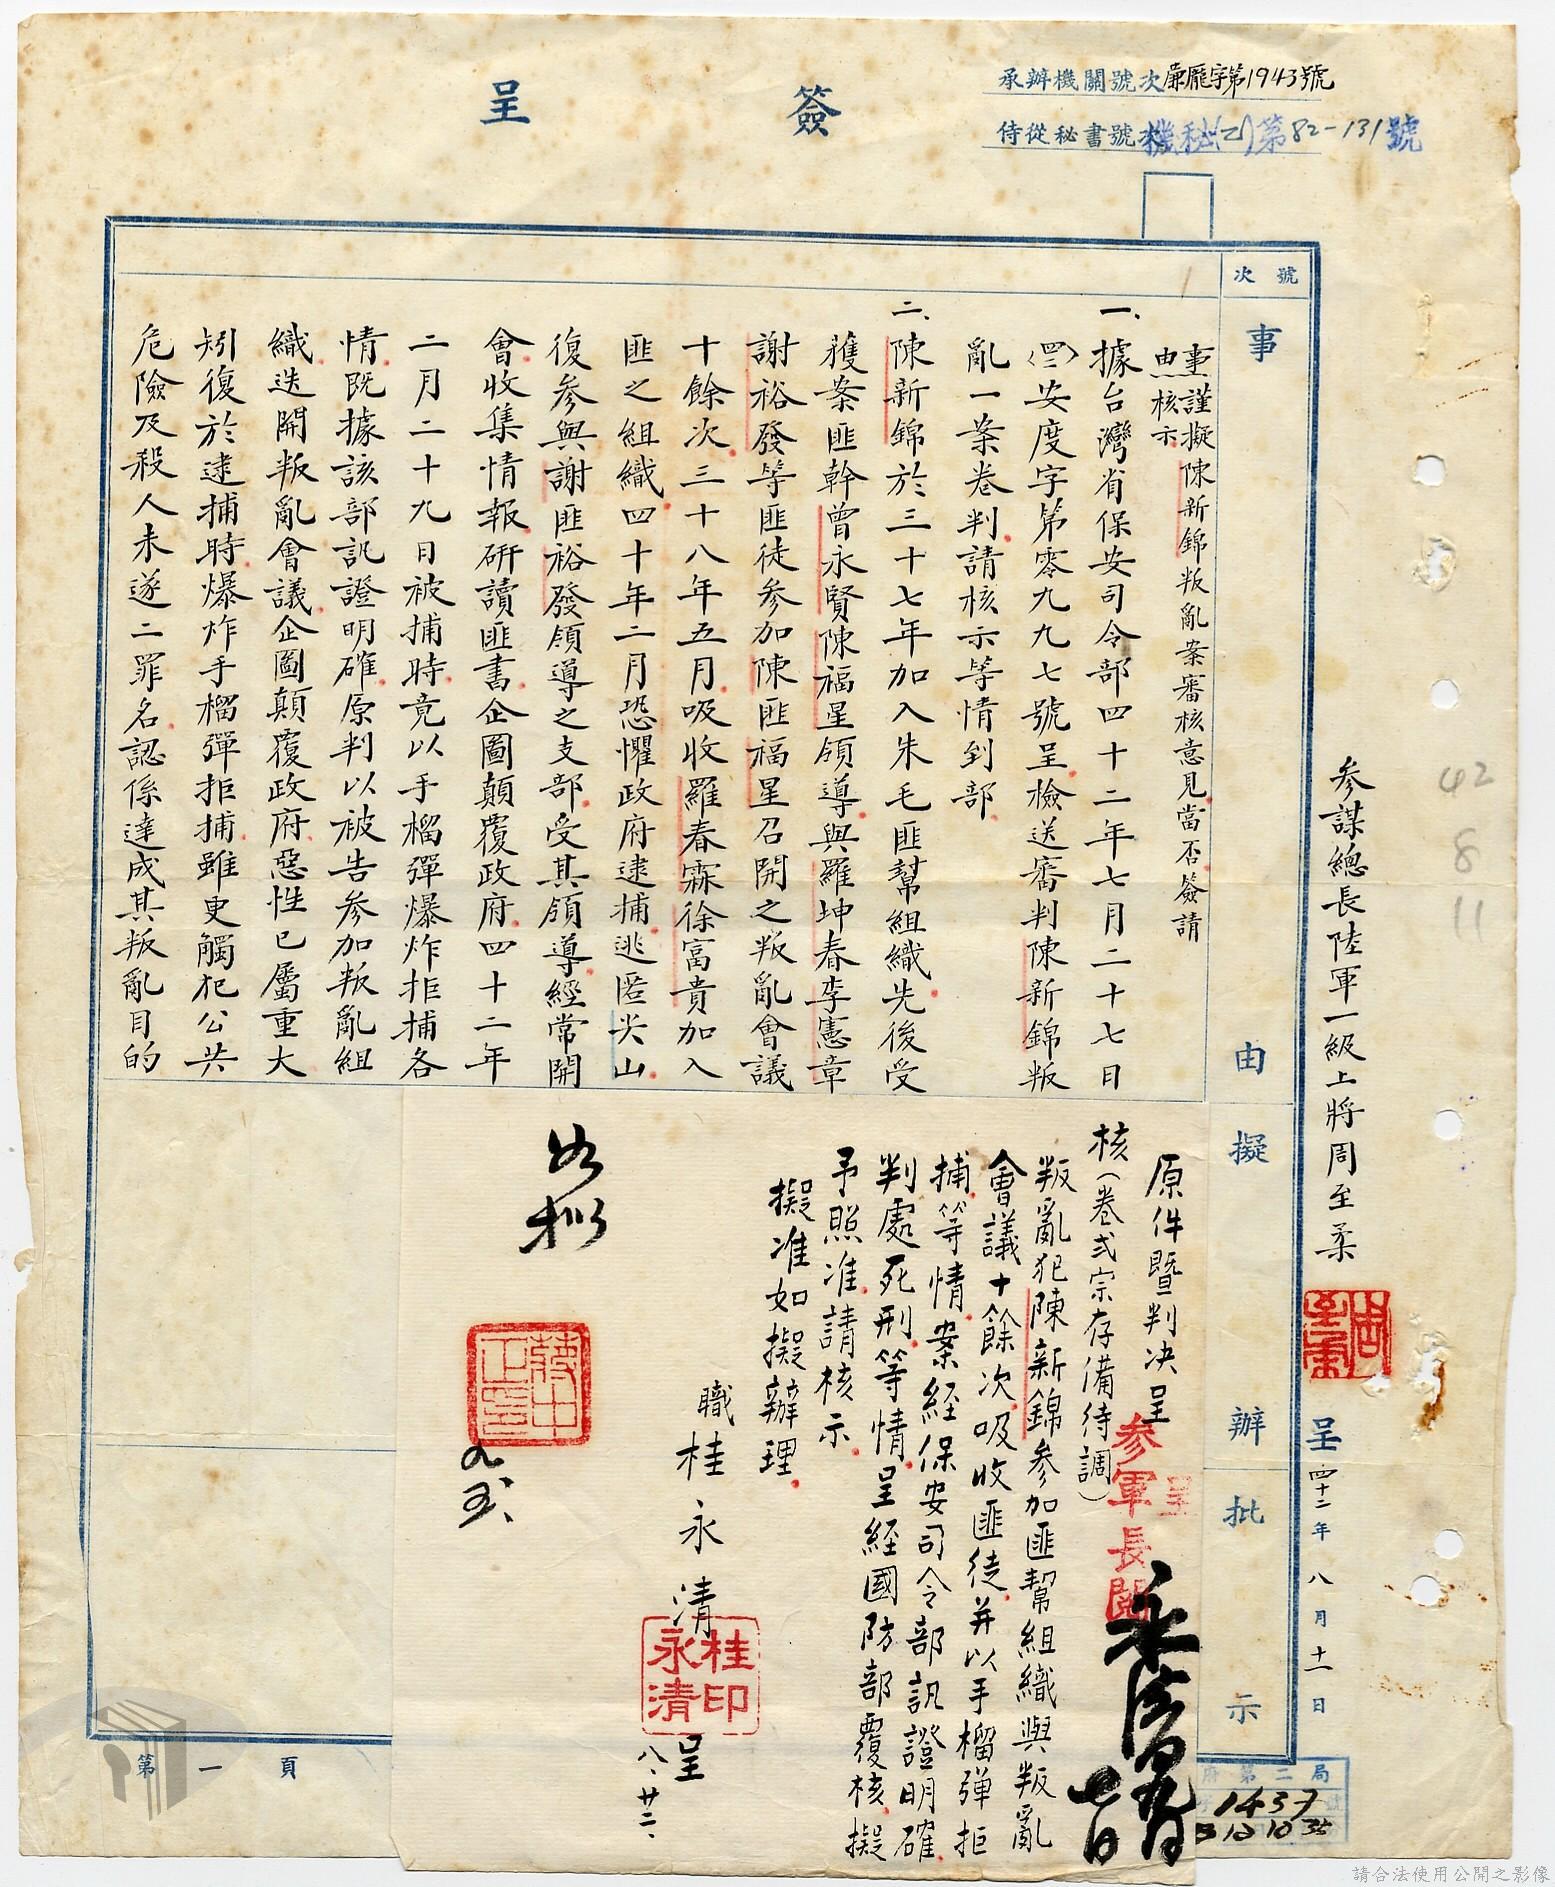 簽呈
承辦機關號次廉龐字第1943號
侍從秘書號次機秘(乙)第82-131號
號次
事由
擬辦
批示
參謀總長陸軍一級上將周至柔
呈
四十二年八月十一日
42
8
11
事由:謹擬陳新錦叛亂案審核意見當否簽請
核示
一、據台灣省保安司令部四十二年七月二十七日
(四二)安度字第零九九七號呈檢送審判陳新錦叛
亂一案卷判請核示等情到部
二、陳新錦於三十七年加入朱毛匪幫組織先後受
獲案匪幹曾永賢陳福星領導與羅坤春李憲章
謝裕發等匪徒參加陳匪福星召開之叛亂會議
十餘次三十八年五月吸收羅春霖徐富貴加入
匪之組織四十年二月恐懼政府逮捕逃匿尖山
復參與謝匪裕發領導之支部受其領導經常開
會收集情報研讀匪書企圖顛覆政府四十二年
二月二十九日被捕時竟以手榴彈爆炸拒捕各
情既據該部訊證明確原判以被告參加叛亂組
織迭開叛亂會議企圖顛覆政府惡性已屬重大
矧復於逮捕時爆炸手榴彈拒捕雖更觸犯公共
危險及殺人未遂二罪名認係達成其叛亂目的
原件暨判決呈
核(卷弍宗存備待調)
叛亂犯陳新錦參加匪幫組織與叛亂
會議十餘次吸收匪徒并以手榴彈拒
捕等情案經保安司令部訊證明確
判處死刑等情呈經國防部覆核擬
予照准請核示
擬准如擬辦理
職桂永清
桂永清印
呈
八、廿二、
呈
參軍長閱
如擬
蔣中正印
九、
第一頁
府第二局
1437
請合法使用公開之影像